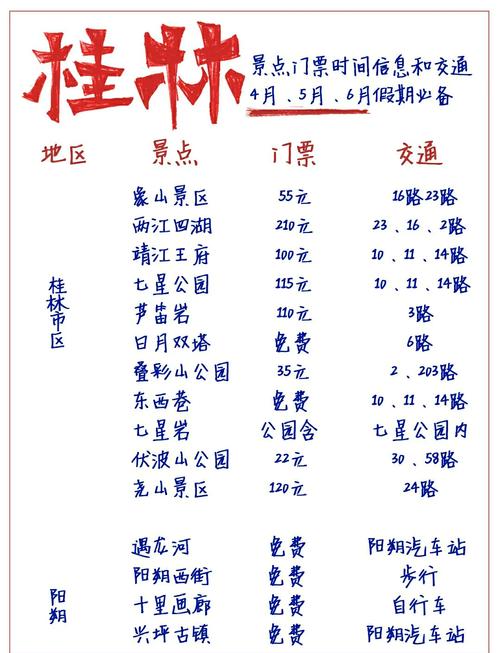 桂林
景点门票时间信息和交通
4月、5月、6月假期必备
地区 景点 门票 交通
桂林市区
象山景区 55元 16路23路
两江四湖 210元 23、16、2路
靖江王府 100元 10、11、14路
七星公园 115元 10、11、14路
芦笛岩 110元 3路
日月双塔 免费 6路
叠彩山公园 35元 2、203路
东西巷 免费 10、11、14路
七星岩 公园含 七星公园内
伏波山公园 22元 30、58路
尧山景区 120元 24路
阳朔
遇龙河 免费 阳朔汽车站
阳朔西街 免费 步行
十里画廊 免费 自行车
兴坪古镇 免费 阳朔汽车站